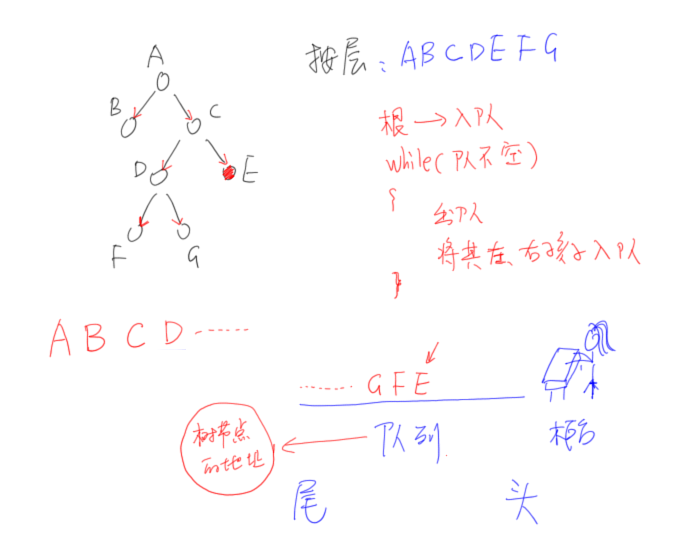 A
B
C
D
E
F
G
按层:ABCDEFG
根→入队
while(队不空)
{
出队
将其左、右孩子入队
}
ABCD……
……GFE
树节点
的地址
队列
柜台
尾
头